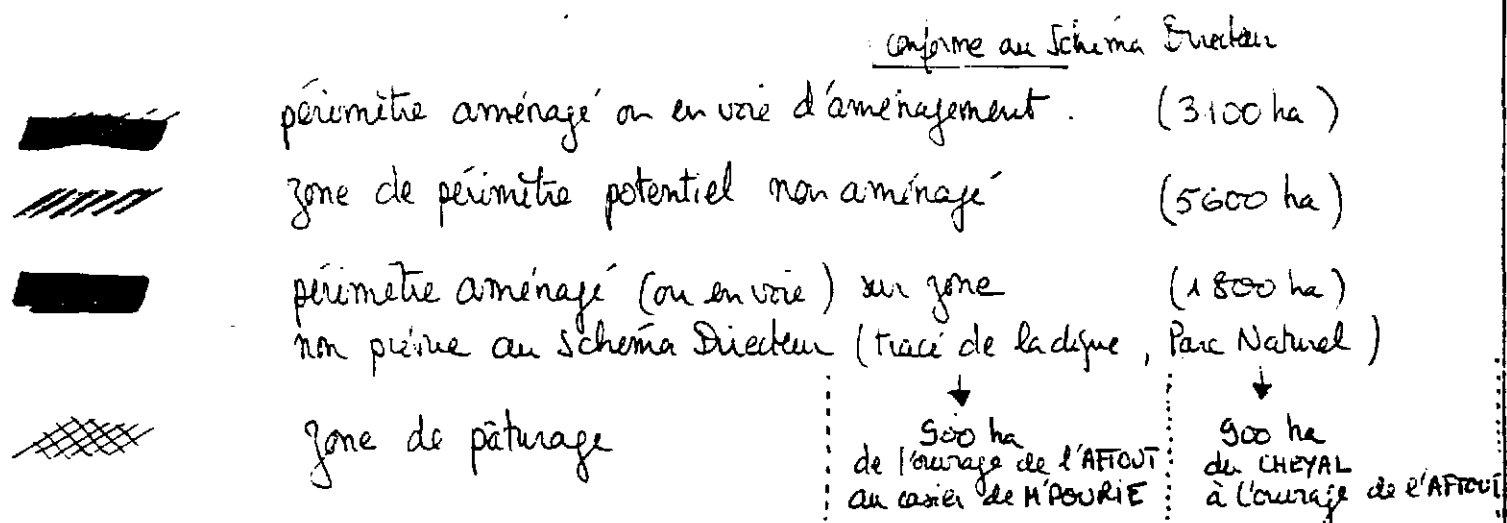 conforme au Schéma Directeur
périmètre aménagé ou en voie d'aménagement. (3100 ha)
zone de périmètre potentiel non aménagé (5600 ha)
périmètre aménagé (ou en voie) sur zone (1800 ha)
non prévue au Schéma Directeur (tracé de la digue, Parc Naturel)
zone de pâturage
900 ha
de l'ouvrage de l'AFTOUT
au casier de M'POURIE
900 ha
du CHEYAL
à l'ouvrage de l'AFTOUT